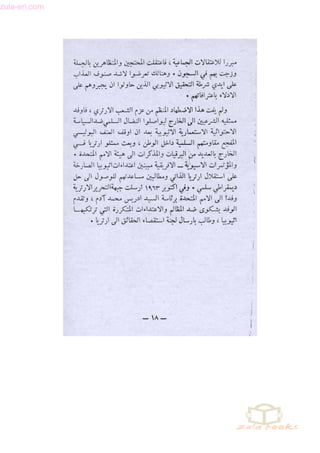 zula-eri.com
مبررا للاعتقالات الجماعية ، فاعتقلت المحتجين والمتظاهرين بالجملة
وزجت بهم في السجون ٠ وهنالك تعرضوا لاشد صنوف العذاب
على ايدي شرطة التحقيق الاثيوبي الذين حاولوا ان يجبروهم على
الادلاء باعترافاتهم ٠
ولم يفت هذا الاضطهاد المنظم من عزم الشعب الارتري ، فاوفد
ممثليه الشرعيين الى الخارج ليواصلوا النضال السلمي ضد السياسة
الاحتوائية الاستعمارية الاثيوبية بعد ان اوقف العنف البوليسي
المفجع مقاومتهم السلمية داخل الوطن ، وبعث ممثلو ارتريا فــي
الخارج بالعديد من البرقيات والمذكرات الى هيئة الامم المتحدة ٠
والمؤتمرات الاسيوية ــ الافريقية مبينين اعتداءات اثيوبيا الصارخة
على استقلال ارتريا الذاتي ومطالبين مساعدتهم للوصول الى حل
ديمقراطي سلمي ٠ وفي اكتوبر ١٩٦٣ ارسلت جبهة التحرير الارترية
وفدا الى الامم المتحدة برئاسة السيد ادريس محمد آدم ، وتقدم
الوفد بشكوى ضد المظالم والاعتداءات المتكررة التي ترتكبهــا
اثيوبيا ، وطالب بارسال لجنة استقصاء الحقائق الى ارتريا ٠
— ١٨ —
zula books